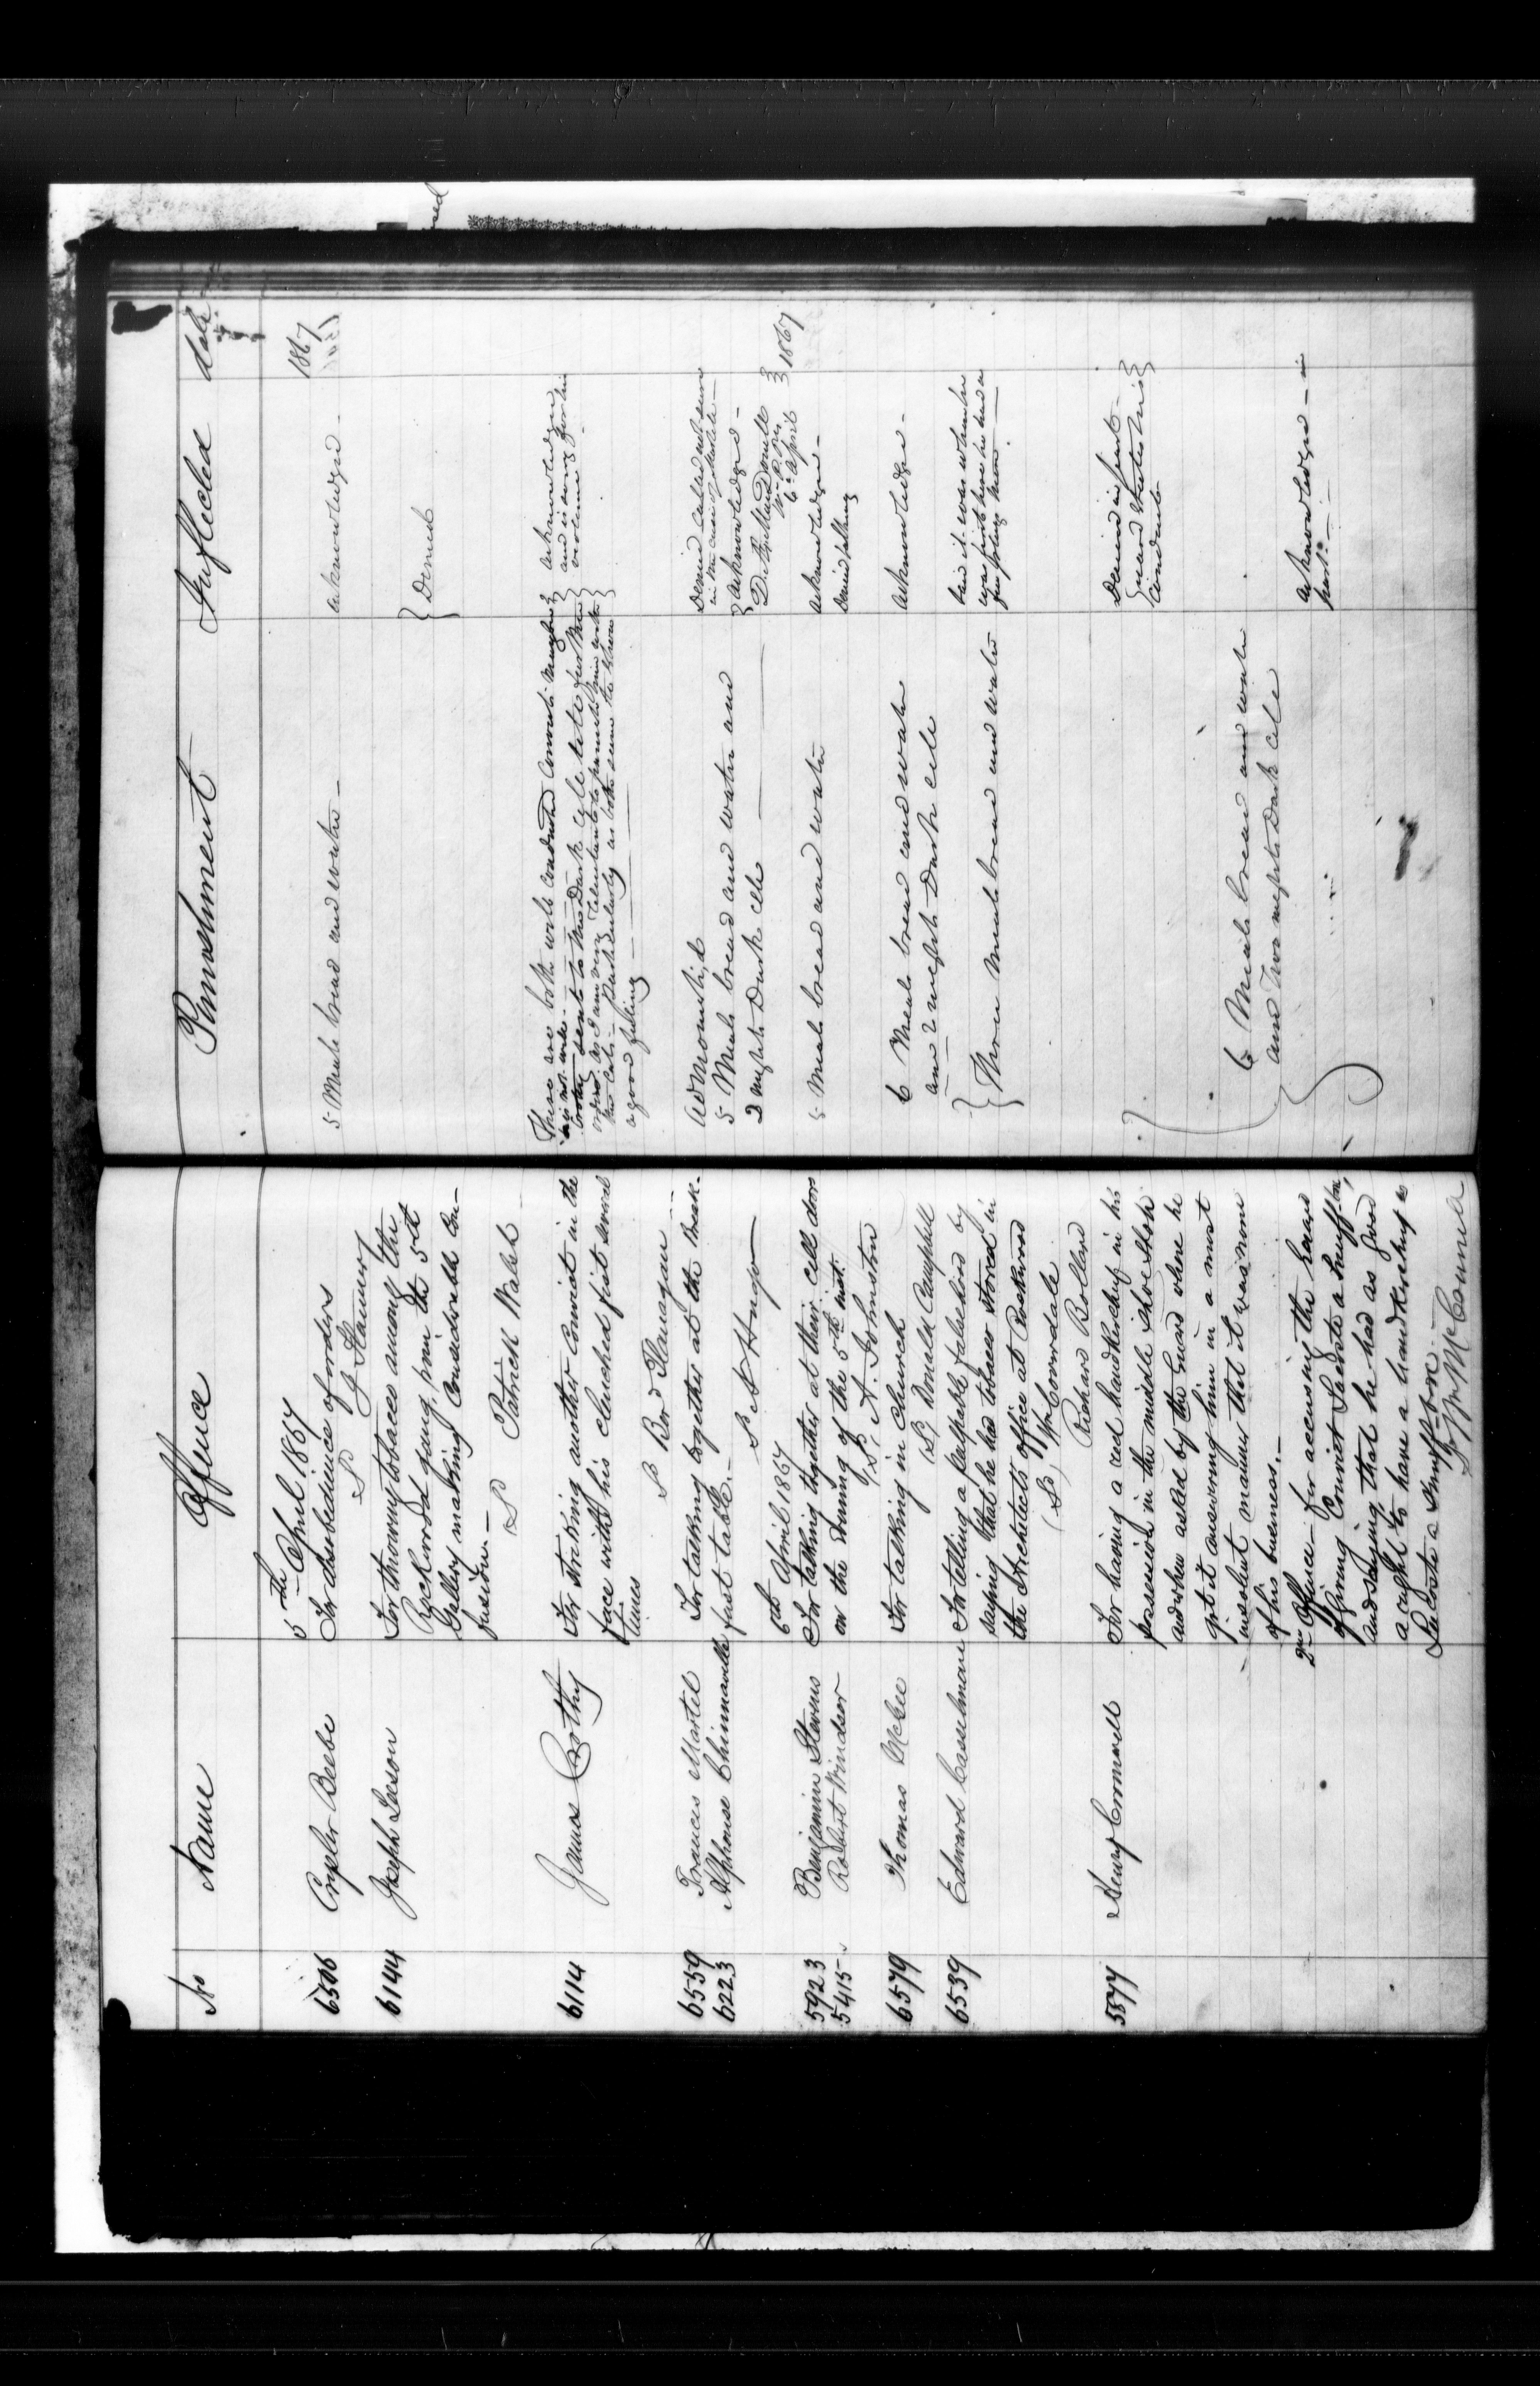 No Name Offence Punishment Inflicted date
5th April 1867 1867
6506 Cripler Beebe For disobedience of orders 5 Meals bread and water - acknowledged -
S J Flannery
6144 Joseph Leeson For throwing tobacco among the } Denied
Rockwood gang, from the 5th
Gallery making considerable con-
fusion. -
(S Patrick Walsh
6114 James Corthy For striking another convict in the
face with his clenched fist several
times
These are both well conducted convicts
sent to the Dark Cells
as I am very reluctant to punish
Particularly as both seem to have
a good feeling
acknowledged
and is sorry for his
violence -
S Bord Flanagan
6559 Frances Martel For talking together at the break- Admonished Denied
6223 Alphonse Chinnaville fast table. - 5 Meals bread and water and } acknowledged -
2 nights Dark Cell
S A Hugo
6th April 1867 6th April } 1867
5923 Benjamin Stevens For talking together at their cell doors 5 Meals bread and water acknowledged -
5415 Robert Windser on the evening of the 5th inst. Denied talking
(S, A. Johnston
6579 Thomas McGee For talking in Church 6 Meals bread and water acknowledged -
and 2 nights Dark Cell
(S) Donald Campbell
6539 Edward Casselman For telling a palpable falsehood by } Three Meals bread and water Said it was when he
saying that he had tobacco stored in was first here he had a
the Architects office at Rockwood
(S) Wm Coverdale
Richard Bollard
5577 Henry Cromwell For having a red handkerchief in his Denied in part -
possession in the middle shoe shop
and when asked by the Guard where he
got it answering him in a most
insolent manner that it was none 6 Meals bread and water
of his business. - and Two nights Dark Cell
2nd Offence - for accusing the Guard acknowledged - in
of giving Convict Lacoste a snuff box, part. -
and saying that he had as good
a right to have a handkerchief as
Lacoste a snuff-box. -